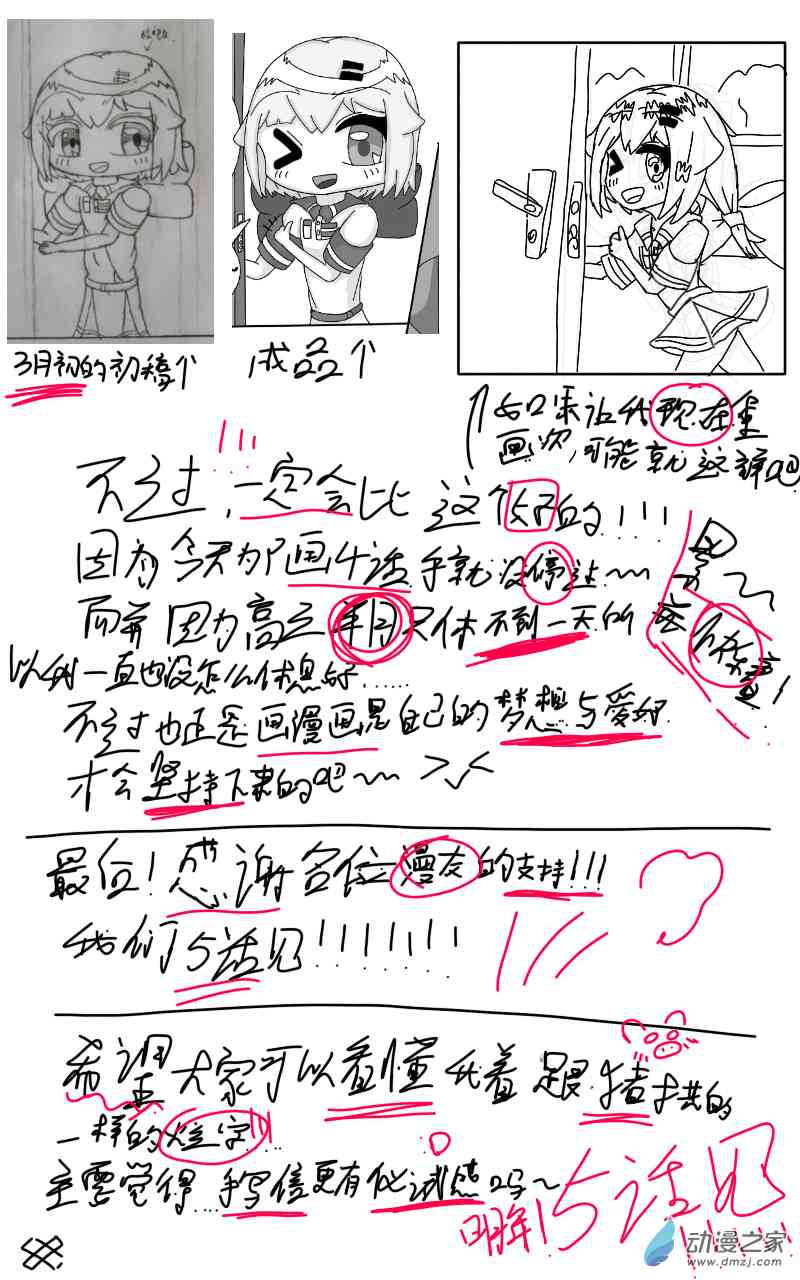 3月初的初稿个
成品个
如果让我现在重
画一次,可能就这样吧
不过,一定会比这个好的!!!
因为今天为了画4话手就没停过~~
而且因为高三半月只休不到一天的
所以我一直也没怎么休息好......
不过也正是画漫画是自己的梦想与爱好
才会坚持下来的吧~~ >v<
最后!感谢各位漫友的支持!!!
我们5话见!!!!!!!
希望大家可以看懂我着跟猪拱的
一样的烂字!!!...
主要觉得...手写信更有仪式感吗~
明年!5话见
动漫之家
www.dmzj.com